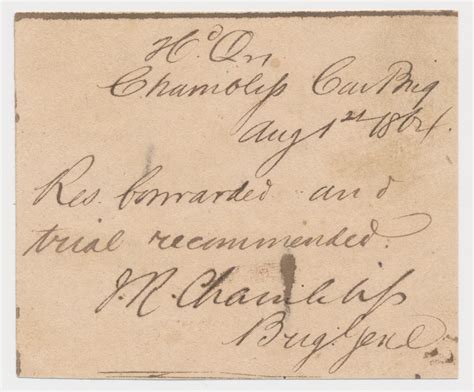 Hd Qrs
Chambliss Cav Brig
Aug 1st 1864.
Res. forwarded and
trial recommended.
J.R. Chambliss
Brig. Genl